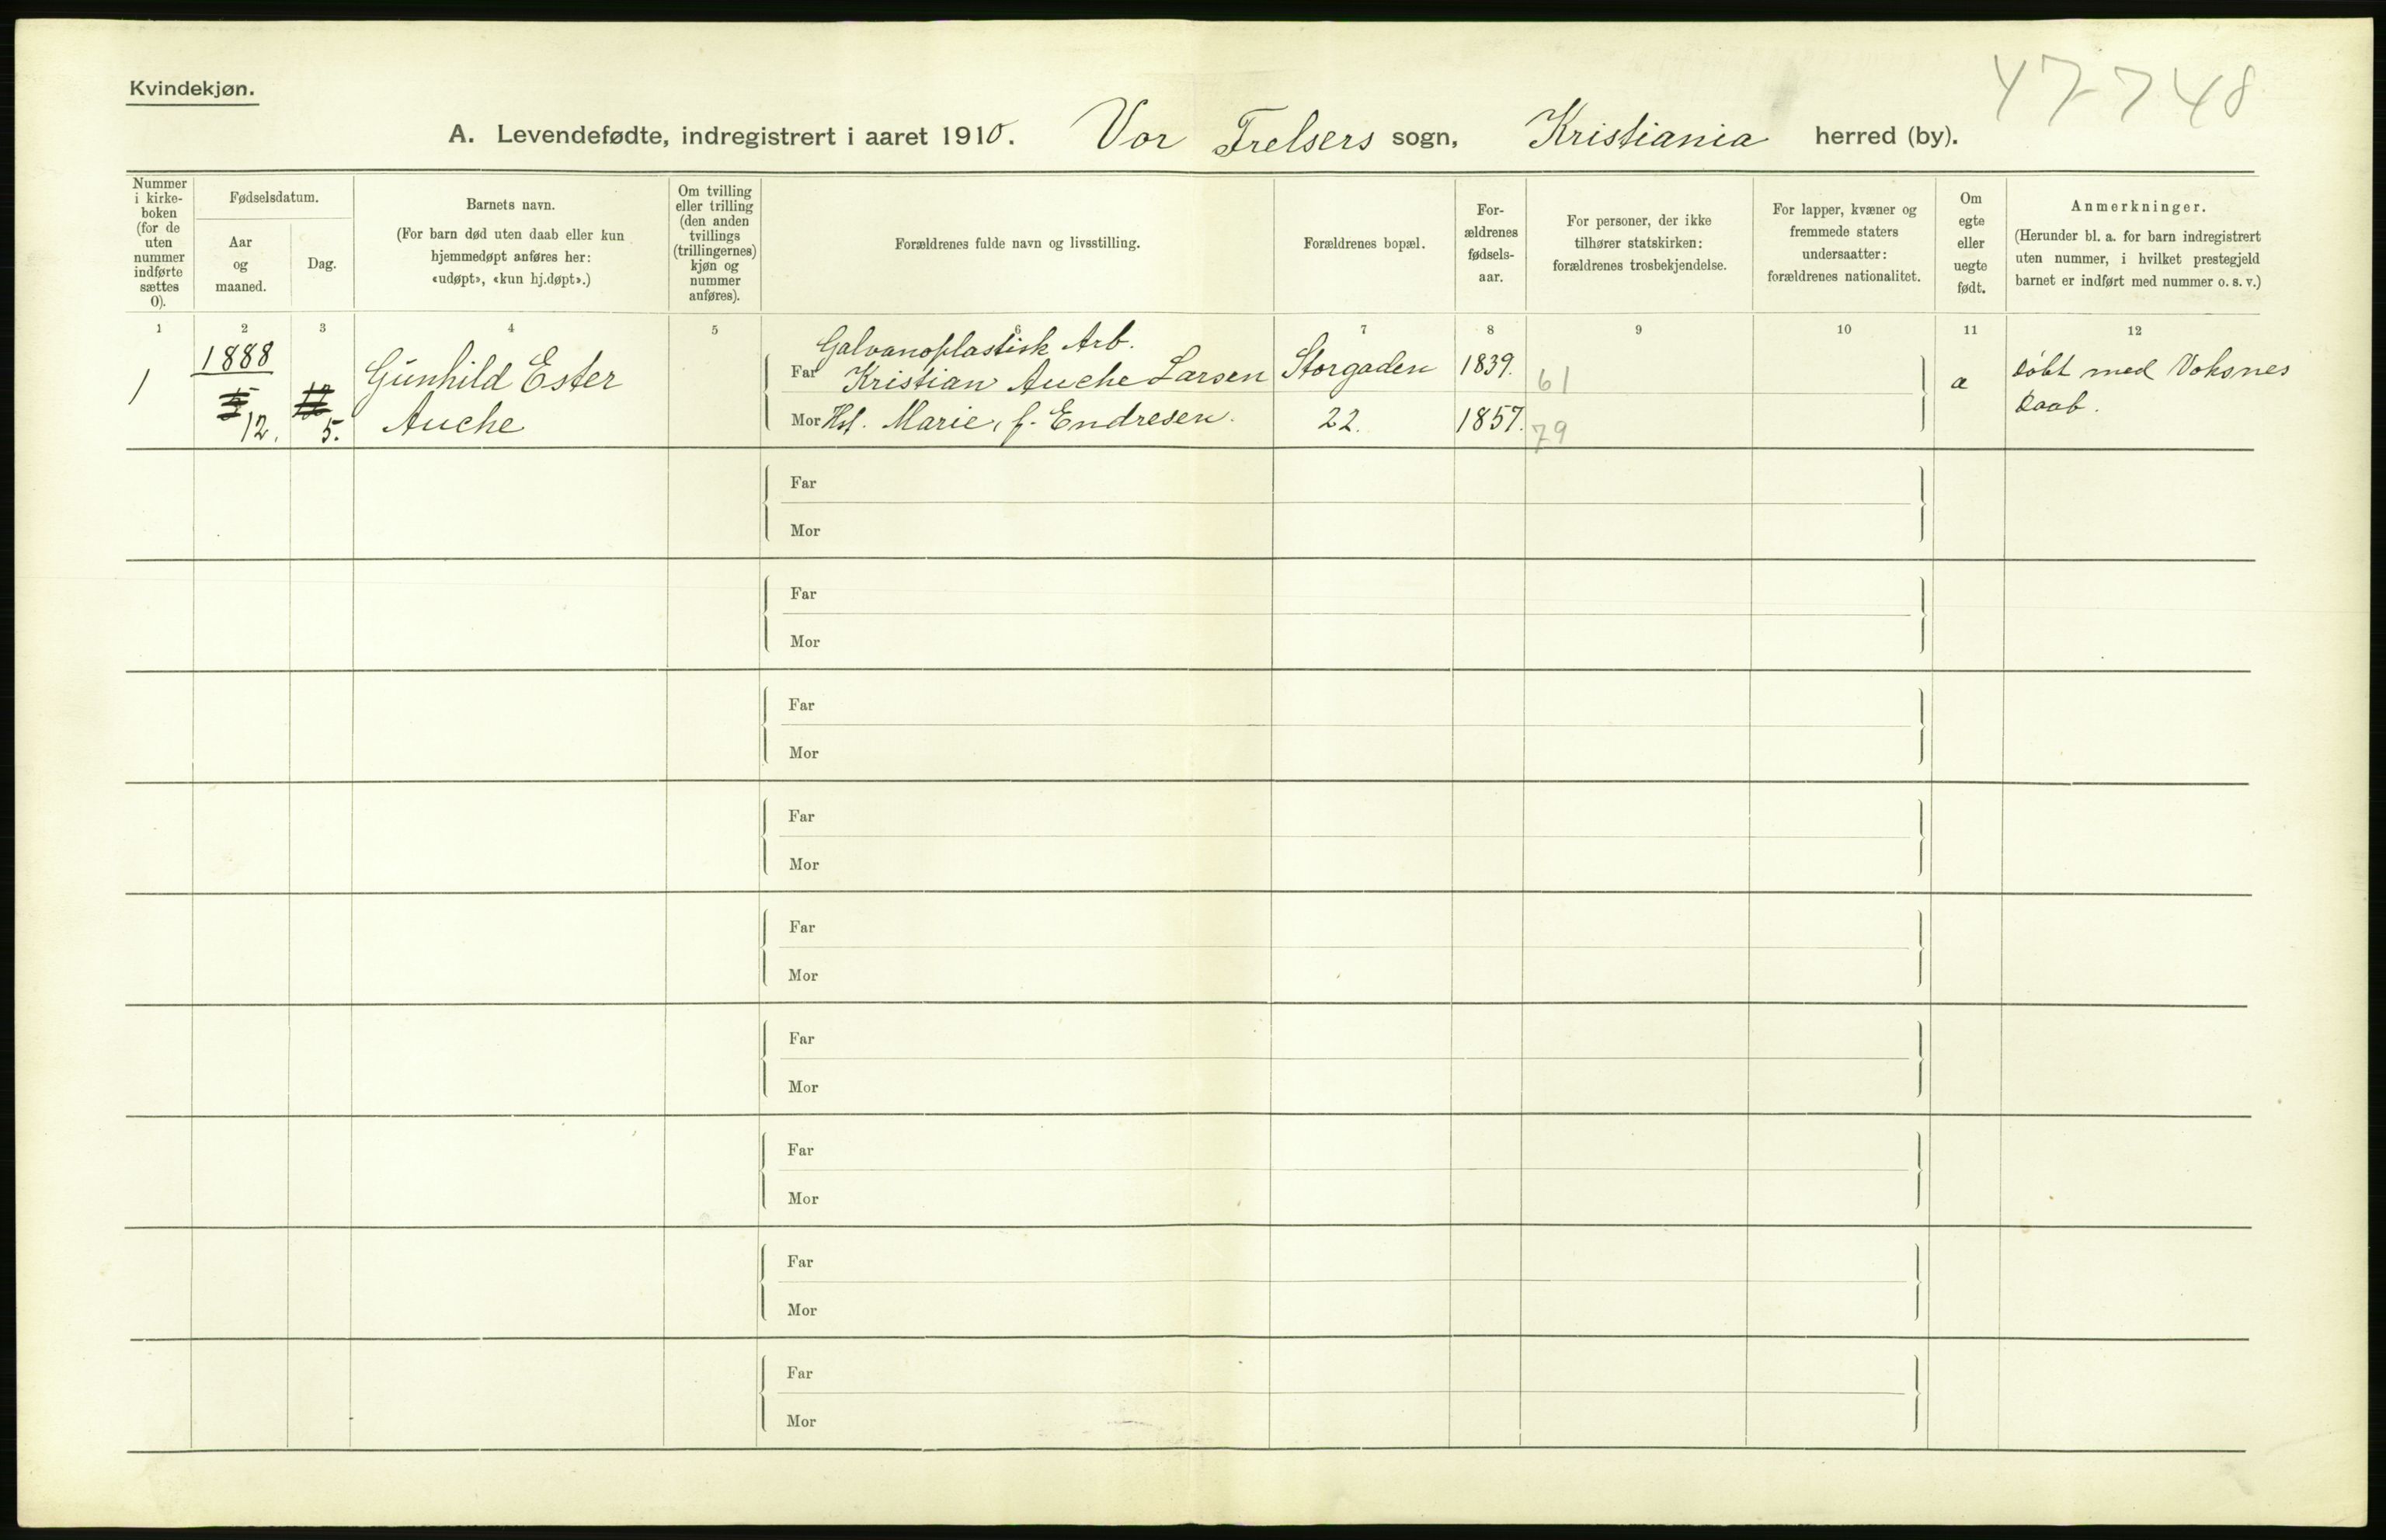 Kvindekjøn.
47748
A. Levendefødte, indregistrert i aaret 1910. Vor Frelsers sogn, Kristiania herred (by).
Nummer
i kirke-
boken
(for de
uten
nummer
indførte
sættes
0).
Fødselsdatum.
Aar
og
maaned.
Dag.
Barnets navn.
(For barn død uten daab eller kun
hjemmedøpt anføres her:
«udøpt», «kun hj.døpt».)
Om tvilling
eller trilling
(den anden
tvillings
(trillingernes)
kjøn og
nummer
anføres).
Forældrenes fulde navn og livsstilling.
Forældrenes bopæl.
For-
ældrenes
fødsels-
aar.
For personer, der ikke
tilhører statskirken:
forældrenes trosbekjendelse.
For lapper, kvæner og
fremmede staters
undersaatter:
forældrenes nationalitet.
Om
egte
eller
uegte
født.
Anmerkninger.
(Herunder bl. a. for barn indregistrert
uten nummer, i hvilket prestegjeld
barnet er indført med nummer o. s. v.)
1 2 3 4 5 6 7 8 9 10 11 12
1
1888
12.
5.
Gunhild Ester
Auche
Galvanoplastisk Arb.
Far Kristian Auche Larsen
Mor Hst. Marie, f. Endresen.
Storgaden
22.
1839.
1857.
61
79
a
døbt med Voksnes
daab.
Far
Mor
Far
Mor
Far
Mor
Far
Mor
Far
Mor
Far
Mor
Far
Mor
Far
Mor
Far
Mor